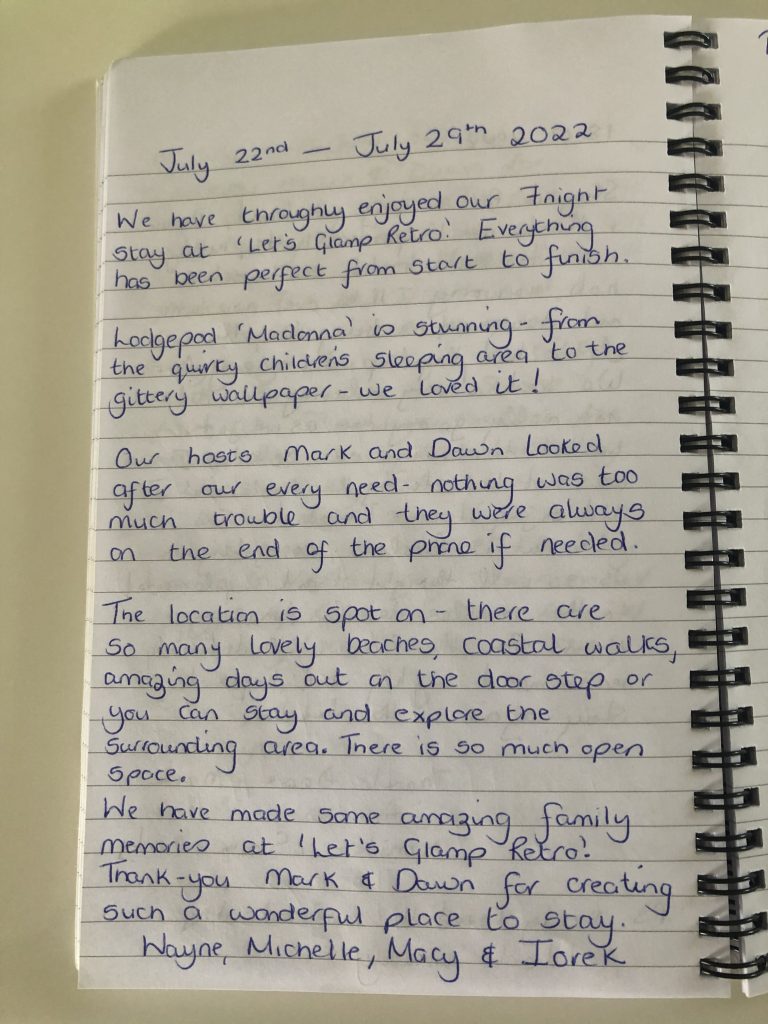 July 22nd — July 29th 2022
We have throughly enjoyed our 7night
stay at 'Let's Glamp Retro'. Everything
has been perfect from start to finish.
Lodgepod 'Madonna' is stunning - from
the quirky children's sleeping area to the
gittery wallpaper - we loved it!
Our hosts Mark and Dawn Looked
after our every need - nothing was too
much trouble and they were always
on the end of the phone if needed.
The location is spot on - there are
so many lovely beaches, coastal walks,
amazing days out on the door step or
you can stay and explore the
surrounding area. There is so much open
space.
We have made some amazing family
memories at 'Let's Glamp Retro'.
Thank-you Mark & Dawn for creating
such a wonderful place to stay.
Wayne, Michelle, Macy & Iorek